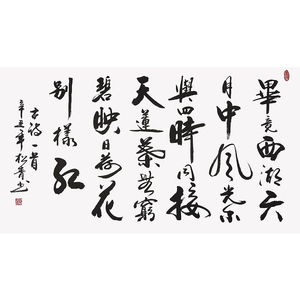 畢竟西湖六
月中風光不
與四時同接
天蓮葉無窮
碧映日荷花
別樣紅
古詩一首
辛丑年松青书